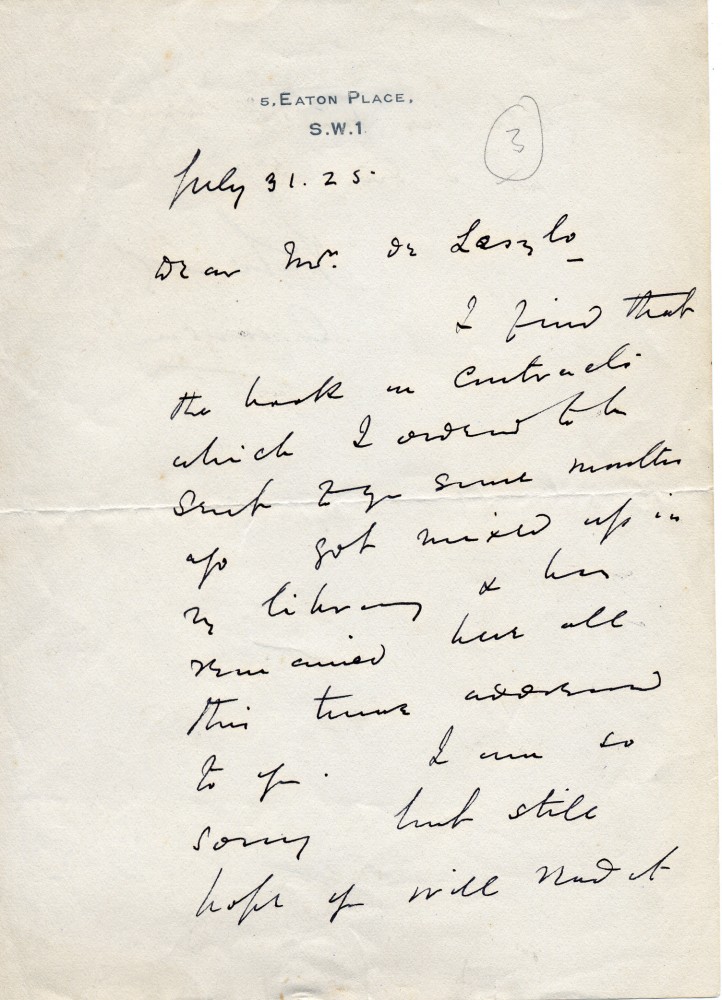 5, EATON PLACE,
S.W.1
3
July 31. 25.
Dear Mr. de Laszlo
I find that
the book on Contracts
which I ordered to be
sent to you some months
ago got mixed up in
my library & has
remained here all
this time addressed
to you. I am so
sorry but still
hope you will read it